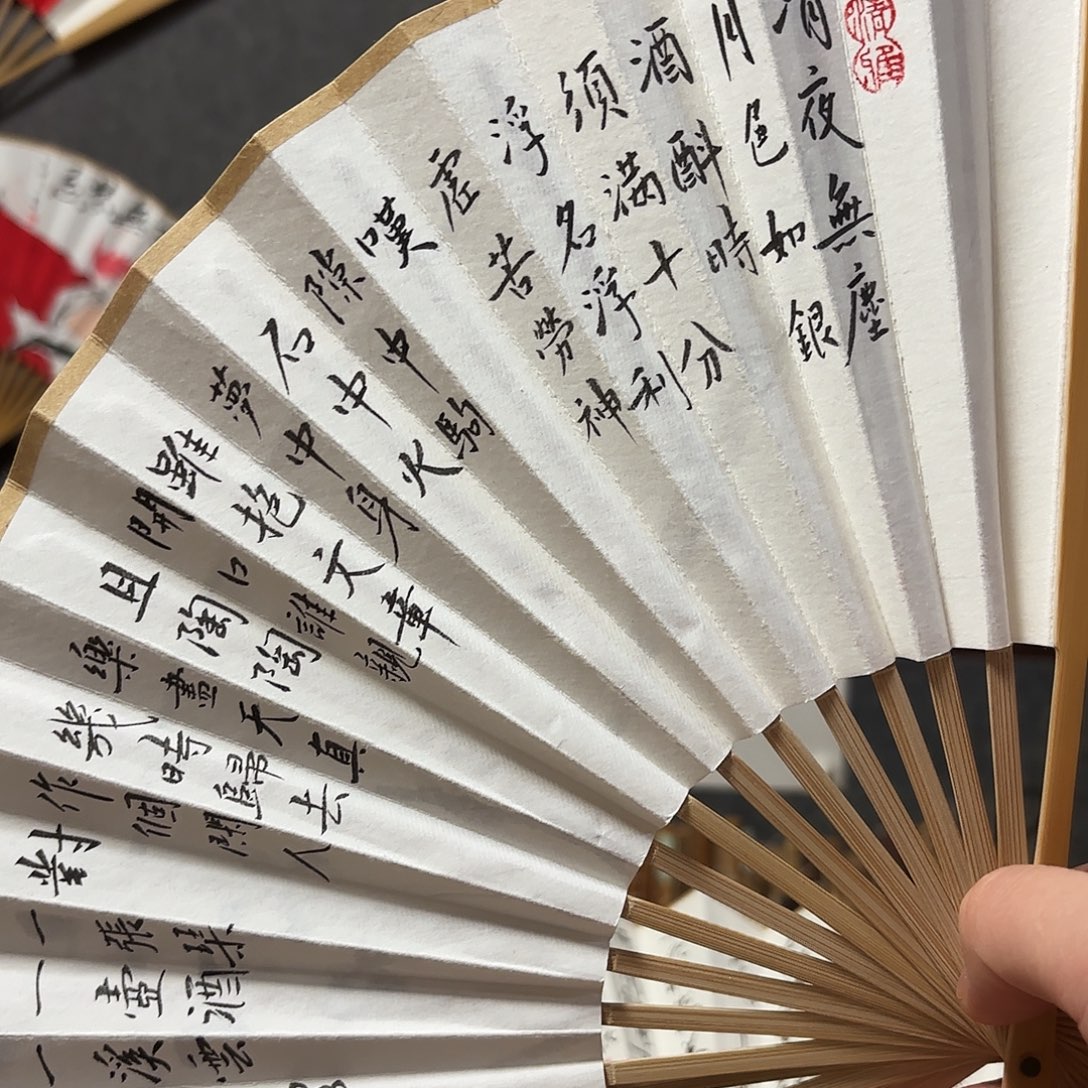 清雅
清夜無塵
月色如銀
酒斟時
須滿十分
浮名浮利
虛苦勞神
嘆
隙中駒
石中火
夢中身
雖抱文章
開口誰親
且陶陶
樂盡天真
幾時歸去
作個閑人
對
一張琴
一壺酒
一溪雲